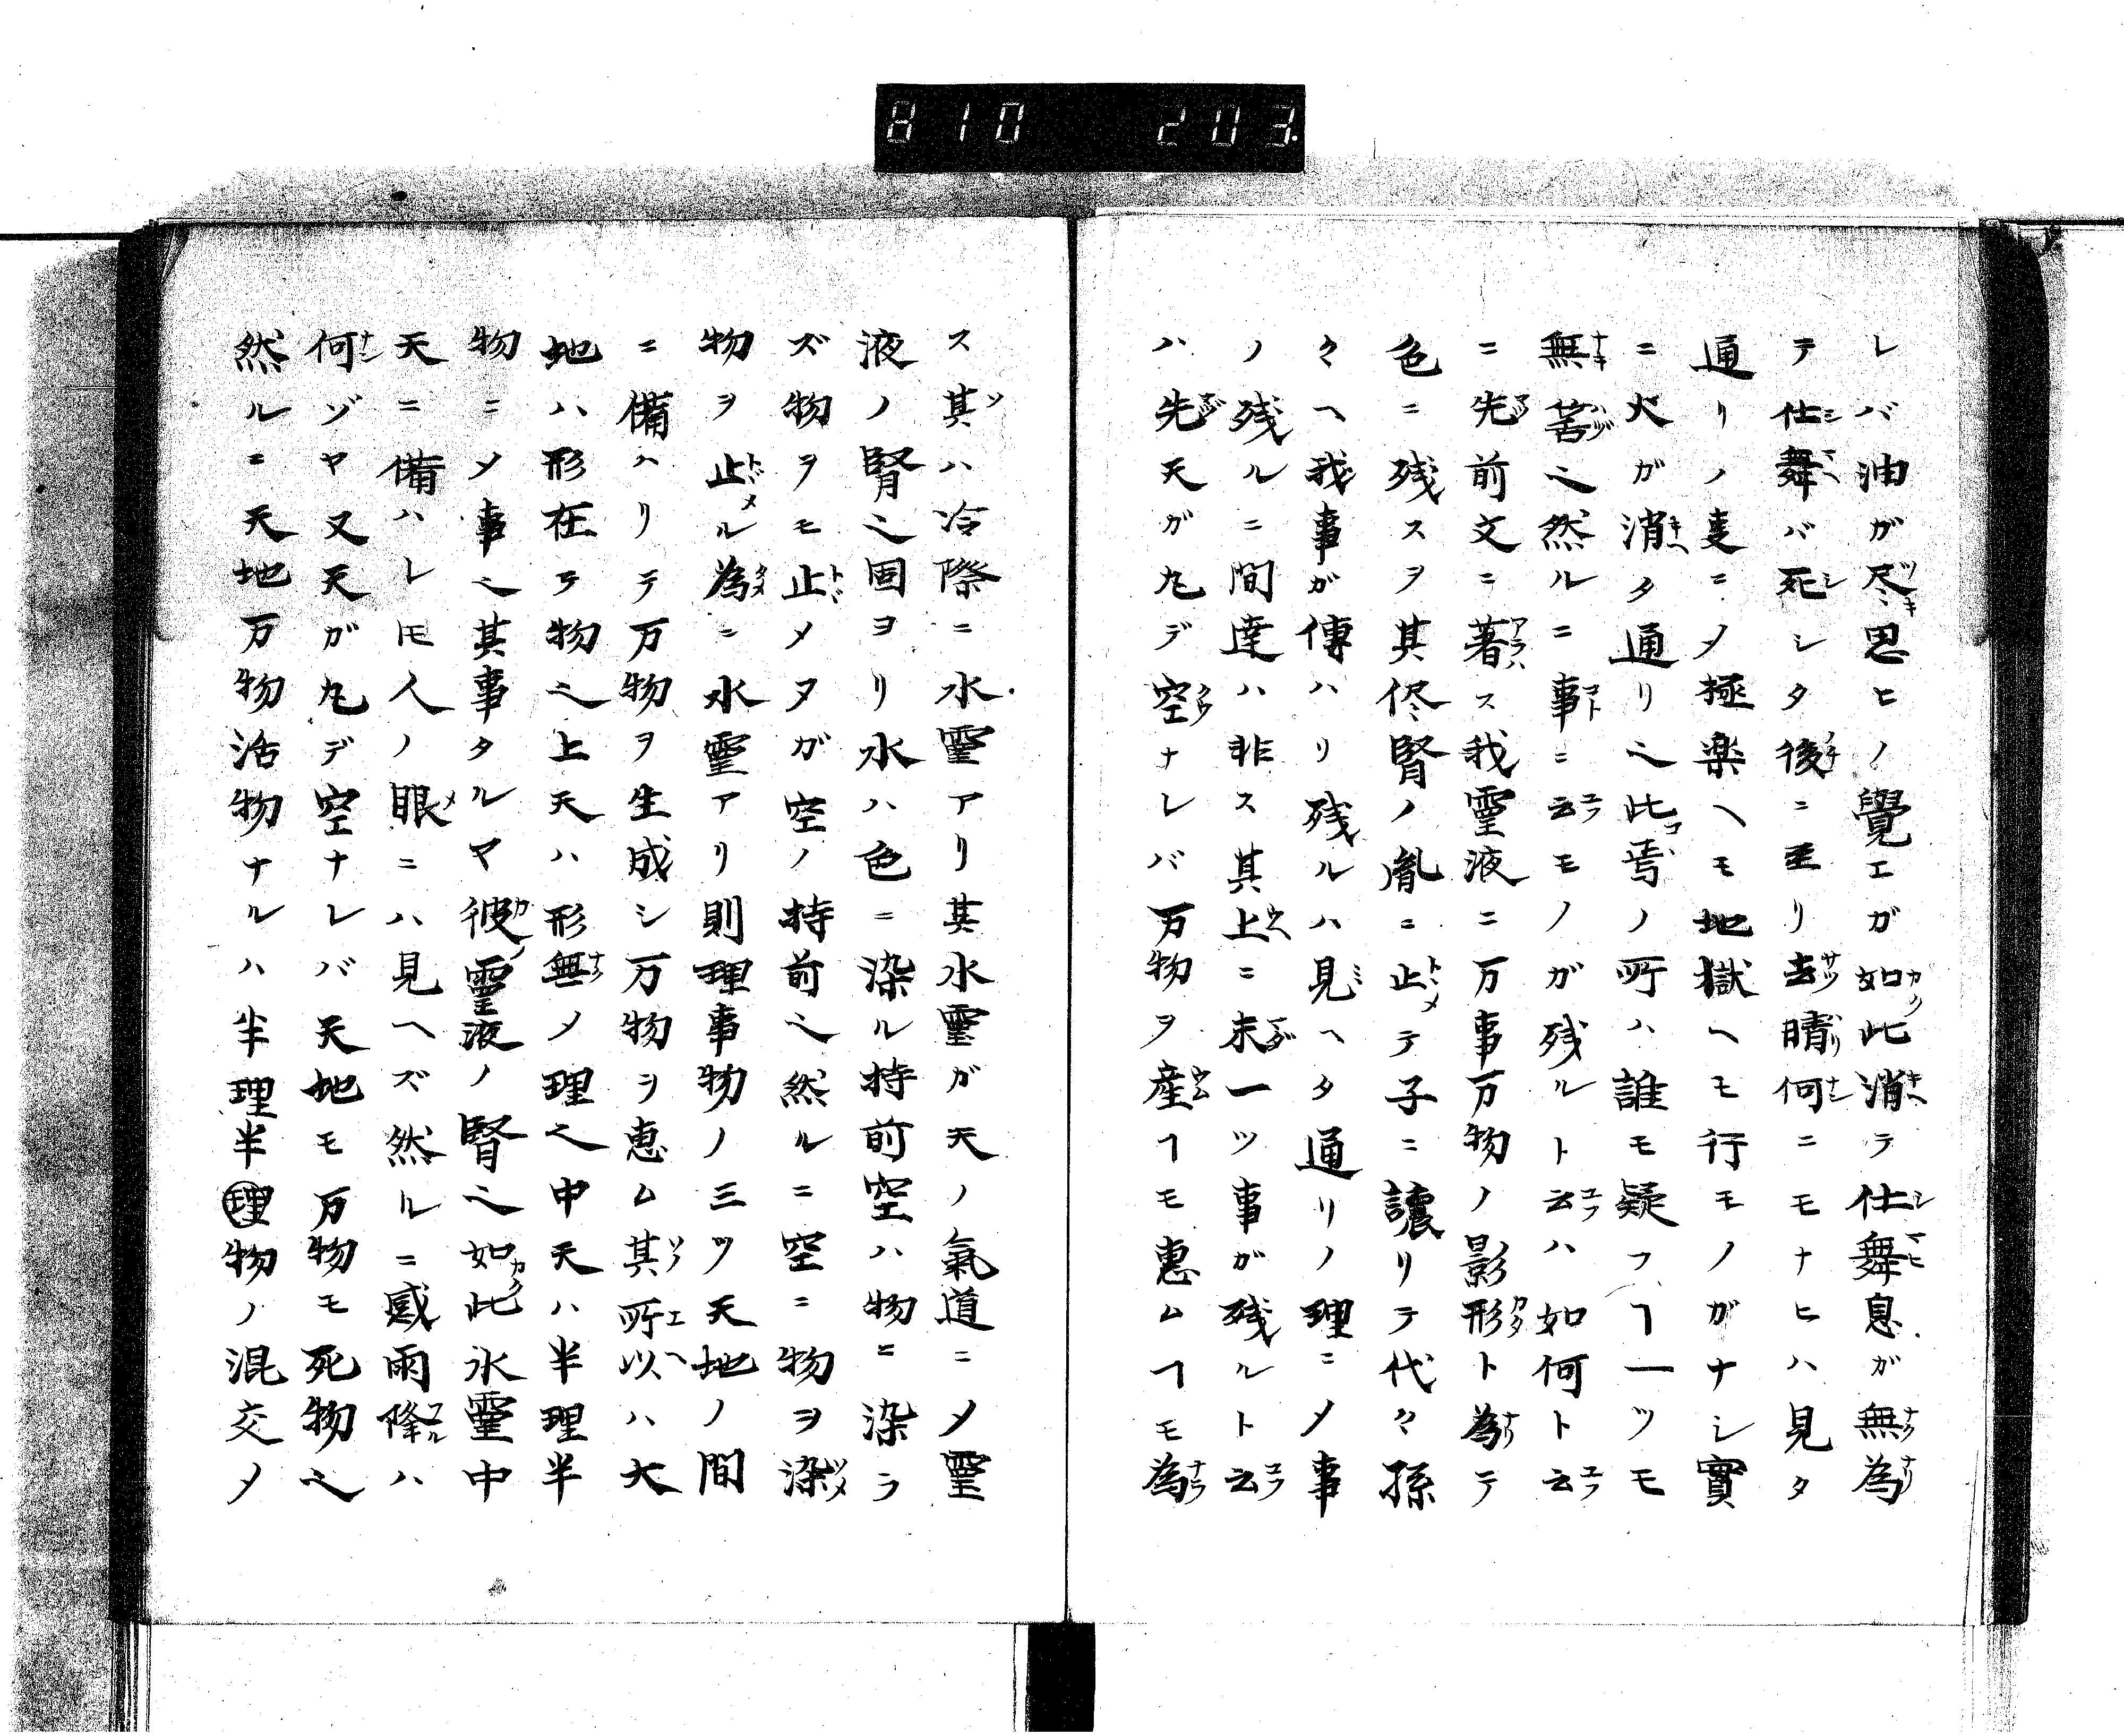 810 203.
レバ油ガ尽キ思ヒノ覺エガ如此消ラ仕舞息ガ無為
テ仕舞バ死シタ後ニ至リ去晴何ニモナヒハ見タ
通リノ叓ニ〆極楽ヘモ地獄ヘモ行モノガナシ實
ニ火ガ消タ通リ之此焉ノ所ハ誰モ疑フヿ一ツモ
無筈之然ルニ事ニ云モノガ残ルト云ハ如何ト云
ニ先前文ニ著ス我靈液ニ万事万物ノ影形ト為テ
色ニ残スヲ其侭腎ノ胤ニ止テ子ニ譲リテ代々孫
々ヘ我事ガ傳ハリ残ルハ見ヘタ通リノ理ニ〆事
ノ残ルニ間違ハ非ス其上ニ未一ツ事ガ残ルト云
ハ先天ガ丸デ空ナレバ万物ヲ産ヿモ恵ムヿモ為
ス其ハ冷際ニ水靈アリ其水靈ガ天ノ氣道ニ〆靈
液ノ腎之固ヨリ水ハ色ニ染ル持前空ハ物ニ染ラ
ズ物ヲモ止メヌガ空ノ持前之然ルニ空ニ物ヲ染
物ヲ止ル為ニ水靈アリ則理事物ノ三ツ天地ノ間
ニ備ハリテ万物ヲ生成シ万物ヲ恵ム其所以ハ大
地ハ形在テ物之上天ハ形無ノ理之中天ハ半理半
物ニ〆事之其事タルヤ彼靈液ノ腎之如此水靈中
天ニ備ハレ𪜈人ノ眼ニハ見ヘズ然ルニ感雨降ハ
何ゾヤ又天ガ丸デ空ナレバ天地モ万物モ死物之
然ルニ天地万物活物ナルハ半理半理物ノ混交〆